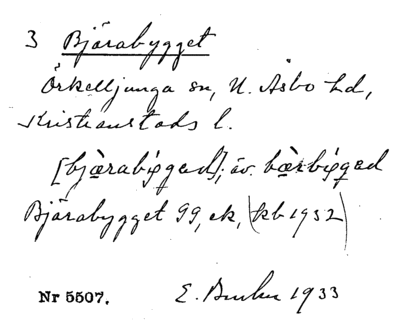 3 Bjärabygget
Örkelljunga sn, N. Åsbo hd,
Kristianstads l.
[bjæ̀rabỳgad]; äv. bæ̀rbỳgad
Bjärabygget gg, ek, (kb 1932)
Nr 5507. E. 1933